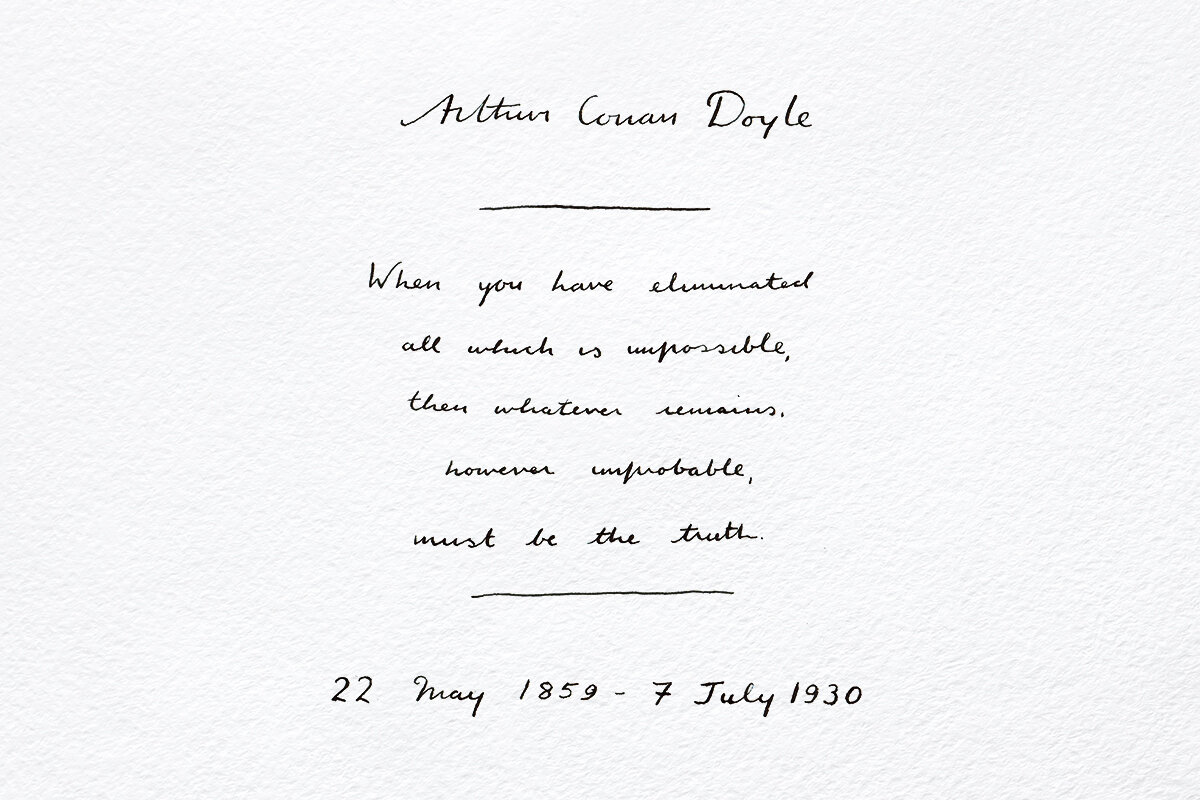 Arthur Conan Doyle
When you have eliminated
all which is impossible,
then whatever remains,
however improbable,
must be the truth.
22 May 1859 - 7 July 1930